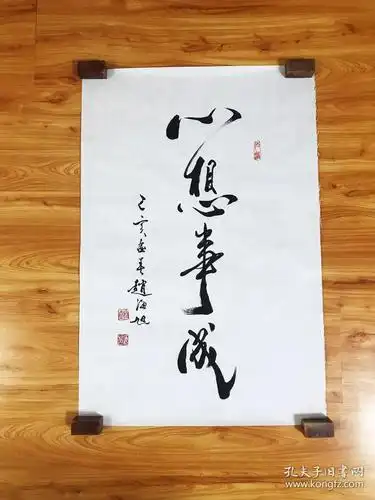 心想事成
己亥孟春趙海旭
孔夫子旧书网
www.kongfz.com